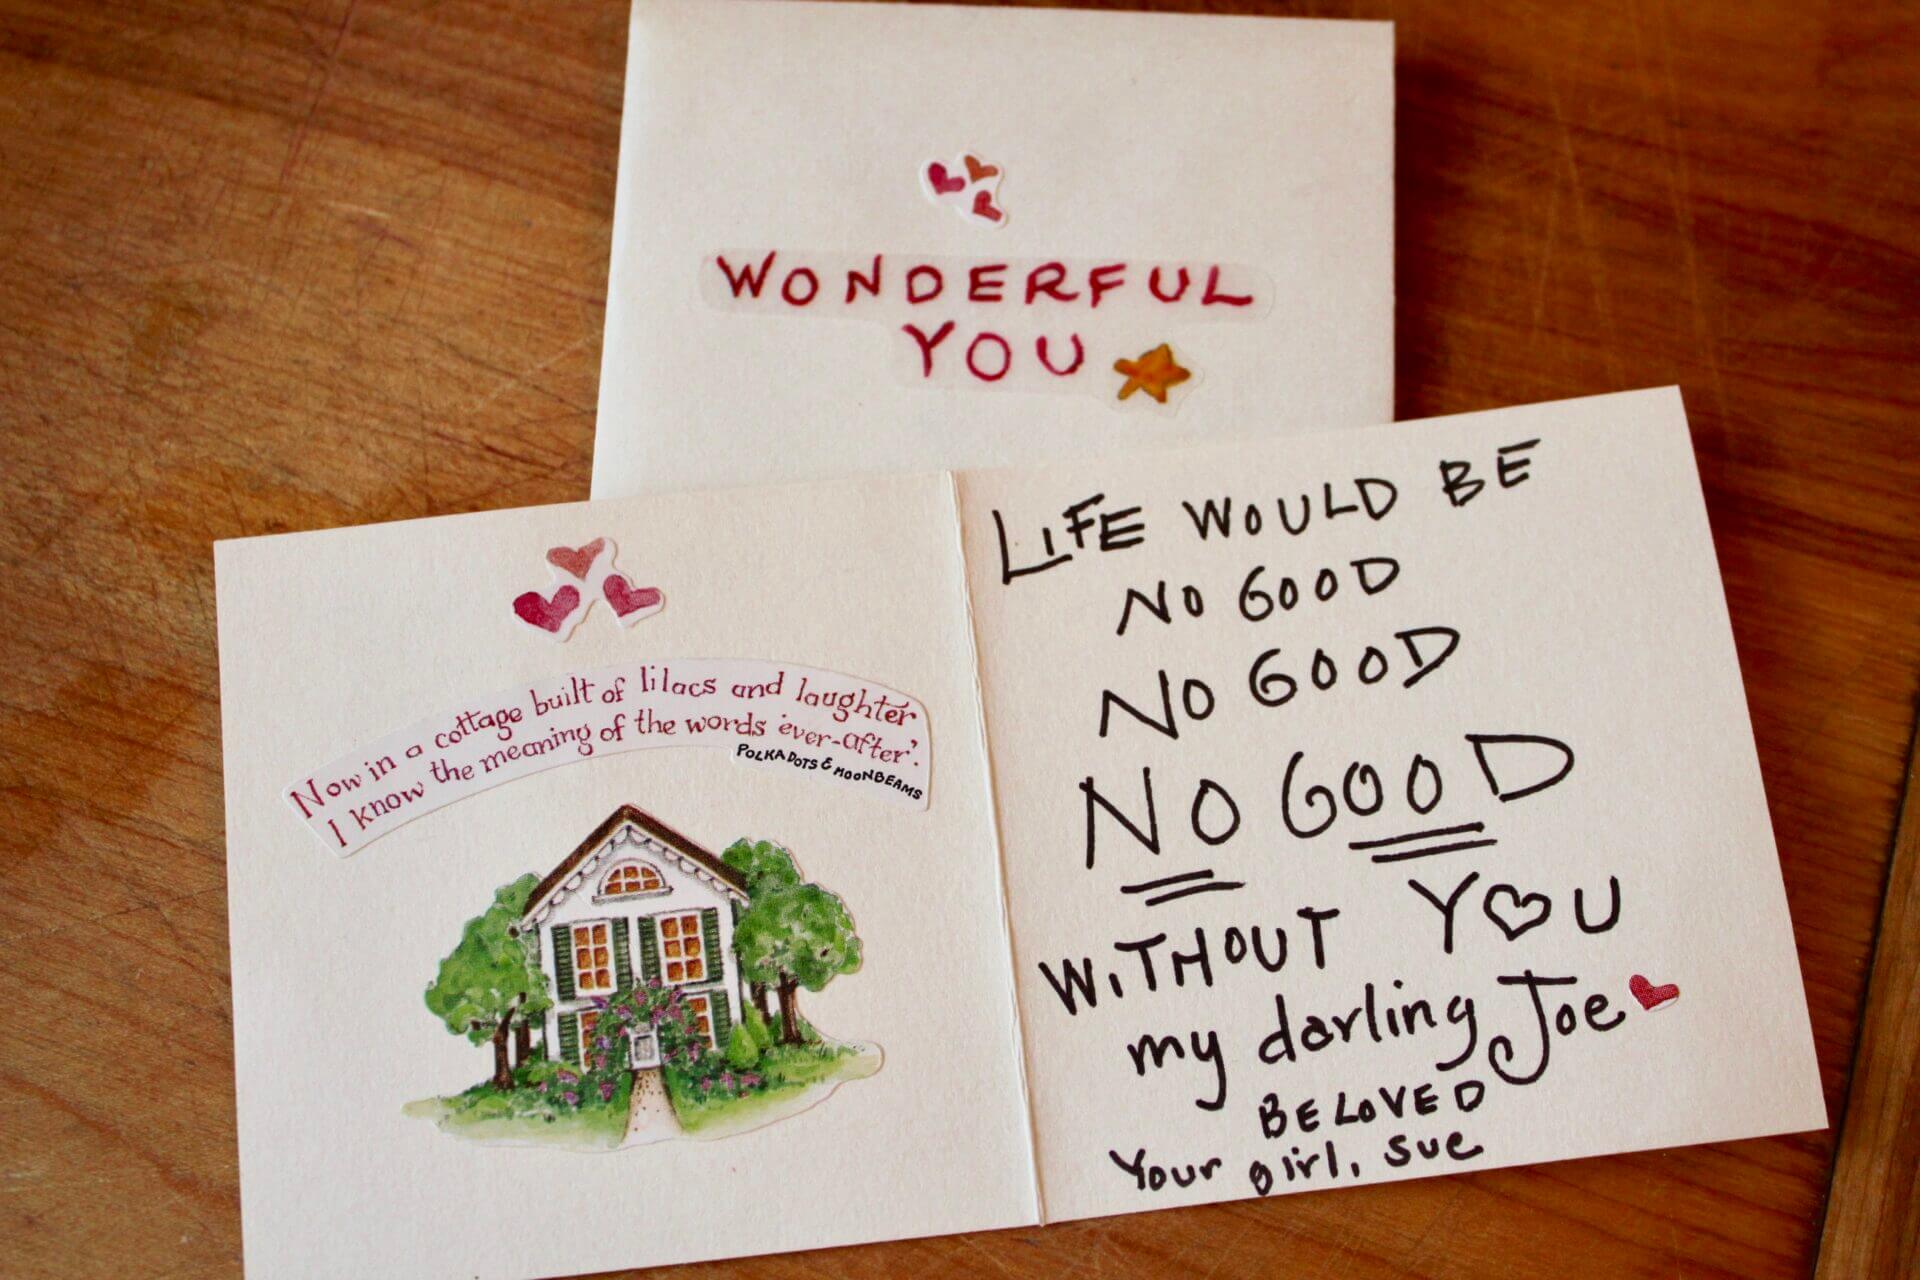 WONDERFUL
YOU
Now in a cottage built of lilacs and laughter
I know the meaning of the words 'ever-after'.
POLKA DOTS & MOONBEAMS
LiFE WOULD BE
NO GOOD
NO GOOD
NO GOOD
WiTHOUT YOU
my darling Joe
BELOVED
Your girl, Sue